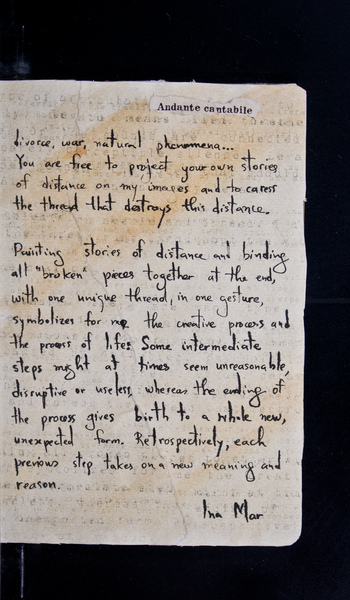 Andante cantabile
divorce, war, natural phenomena...
You are free to project your own stories
of distance on my images and to caress
the thread that destroys this distance.
Painting stories of distance and binding
all "broken" pieces together at the end,
with one unique thread, in one gesture,
symbolizes for me the creative process and
the process of life: Some intermediate
steps might at times seem unreasonable,
disruptive or useless, whereas the ending of
the process gives birth to a whole new,
unexpected form. Retrospectively, each
previous step takes on a new meaning and
reason.
Ina Mar